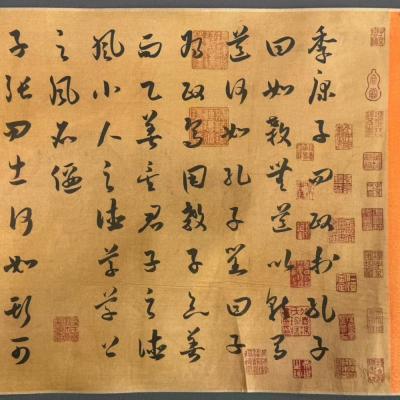 季康子問政於孔子
曰如殺無道以就有
道何如孔子對曰子
為政焉用殺子欲善
而民善矣君子之德
風小人之德草草上
之風必偃
子張問士何如斯可